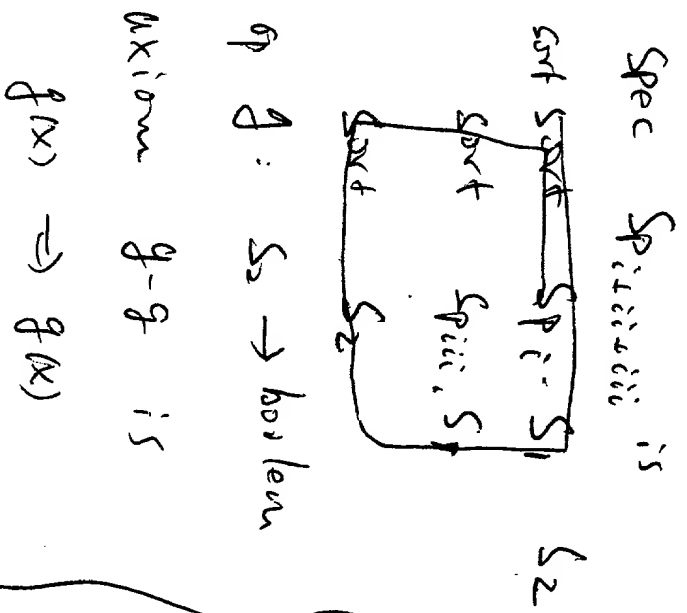 Spec Sp i+ii+iii is
sort Sort Sp i. S1 S2
Sort Sp iii. S
Sort S2
op g : S2 → boolean
axiom g-g is
g(x) ⇒ g(x)